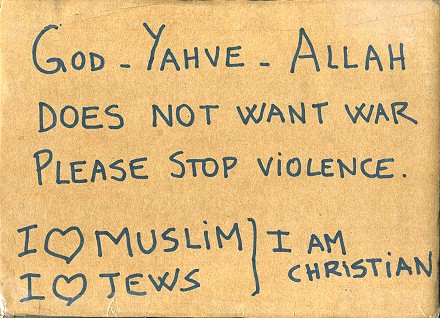 GOD - YAHVE - ALLAH
DOES NOT WANT WAR
PLEASE STOP VIOLENCE.
I ♡ MUSLIM } I AM
I ♡ JEWS } CHRISTIAN